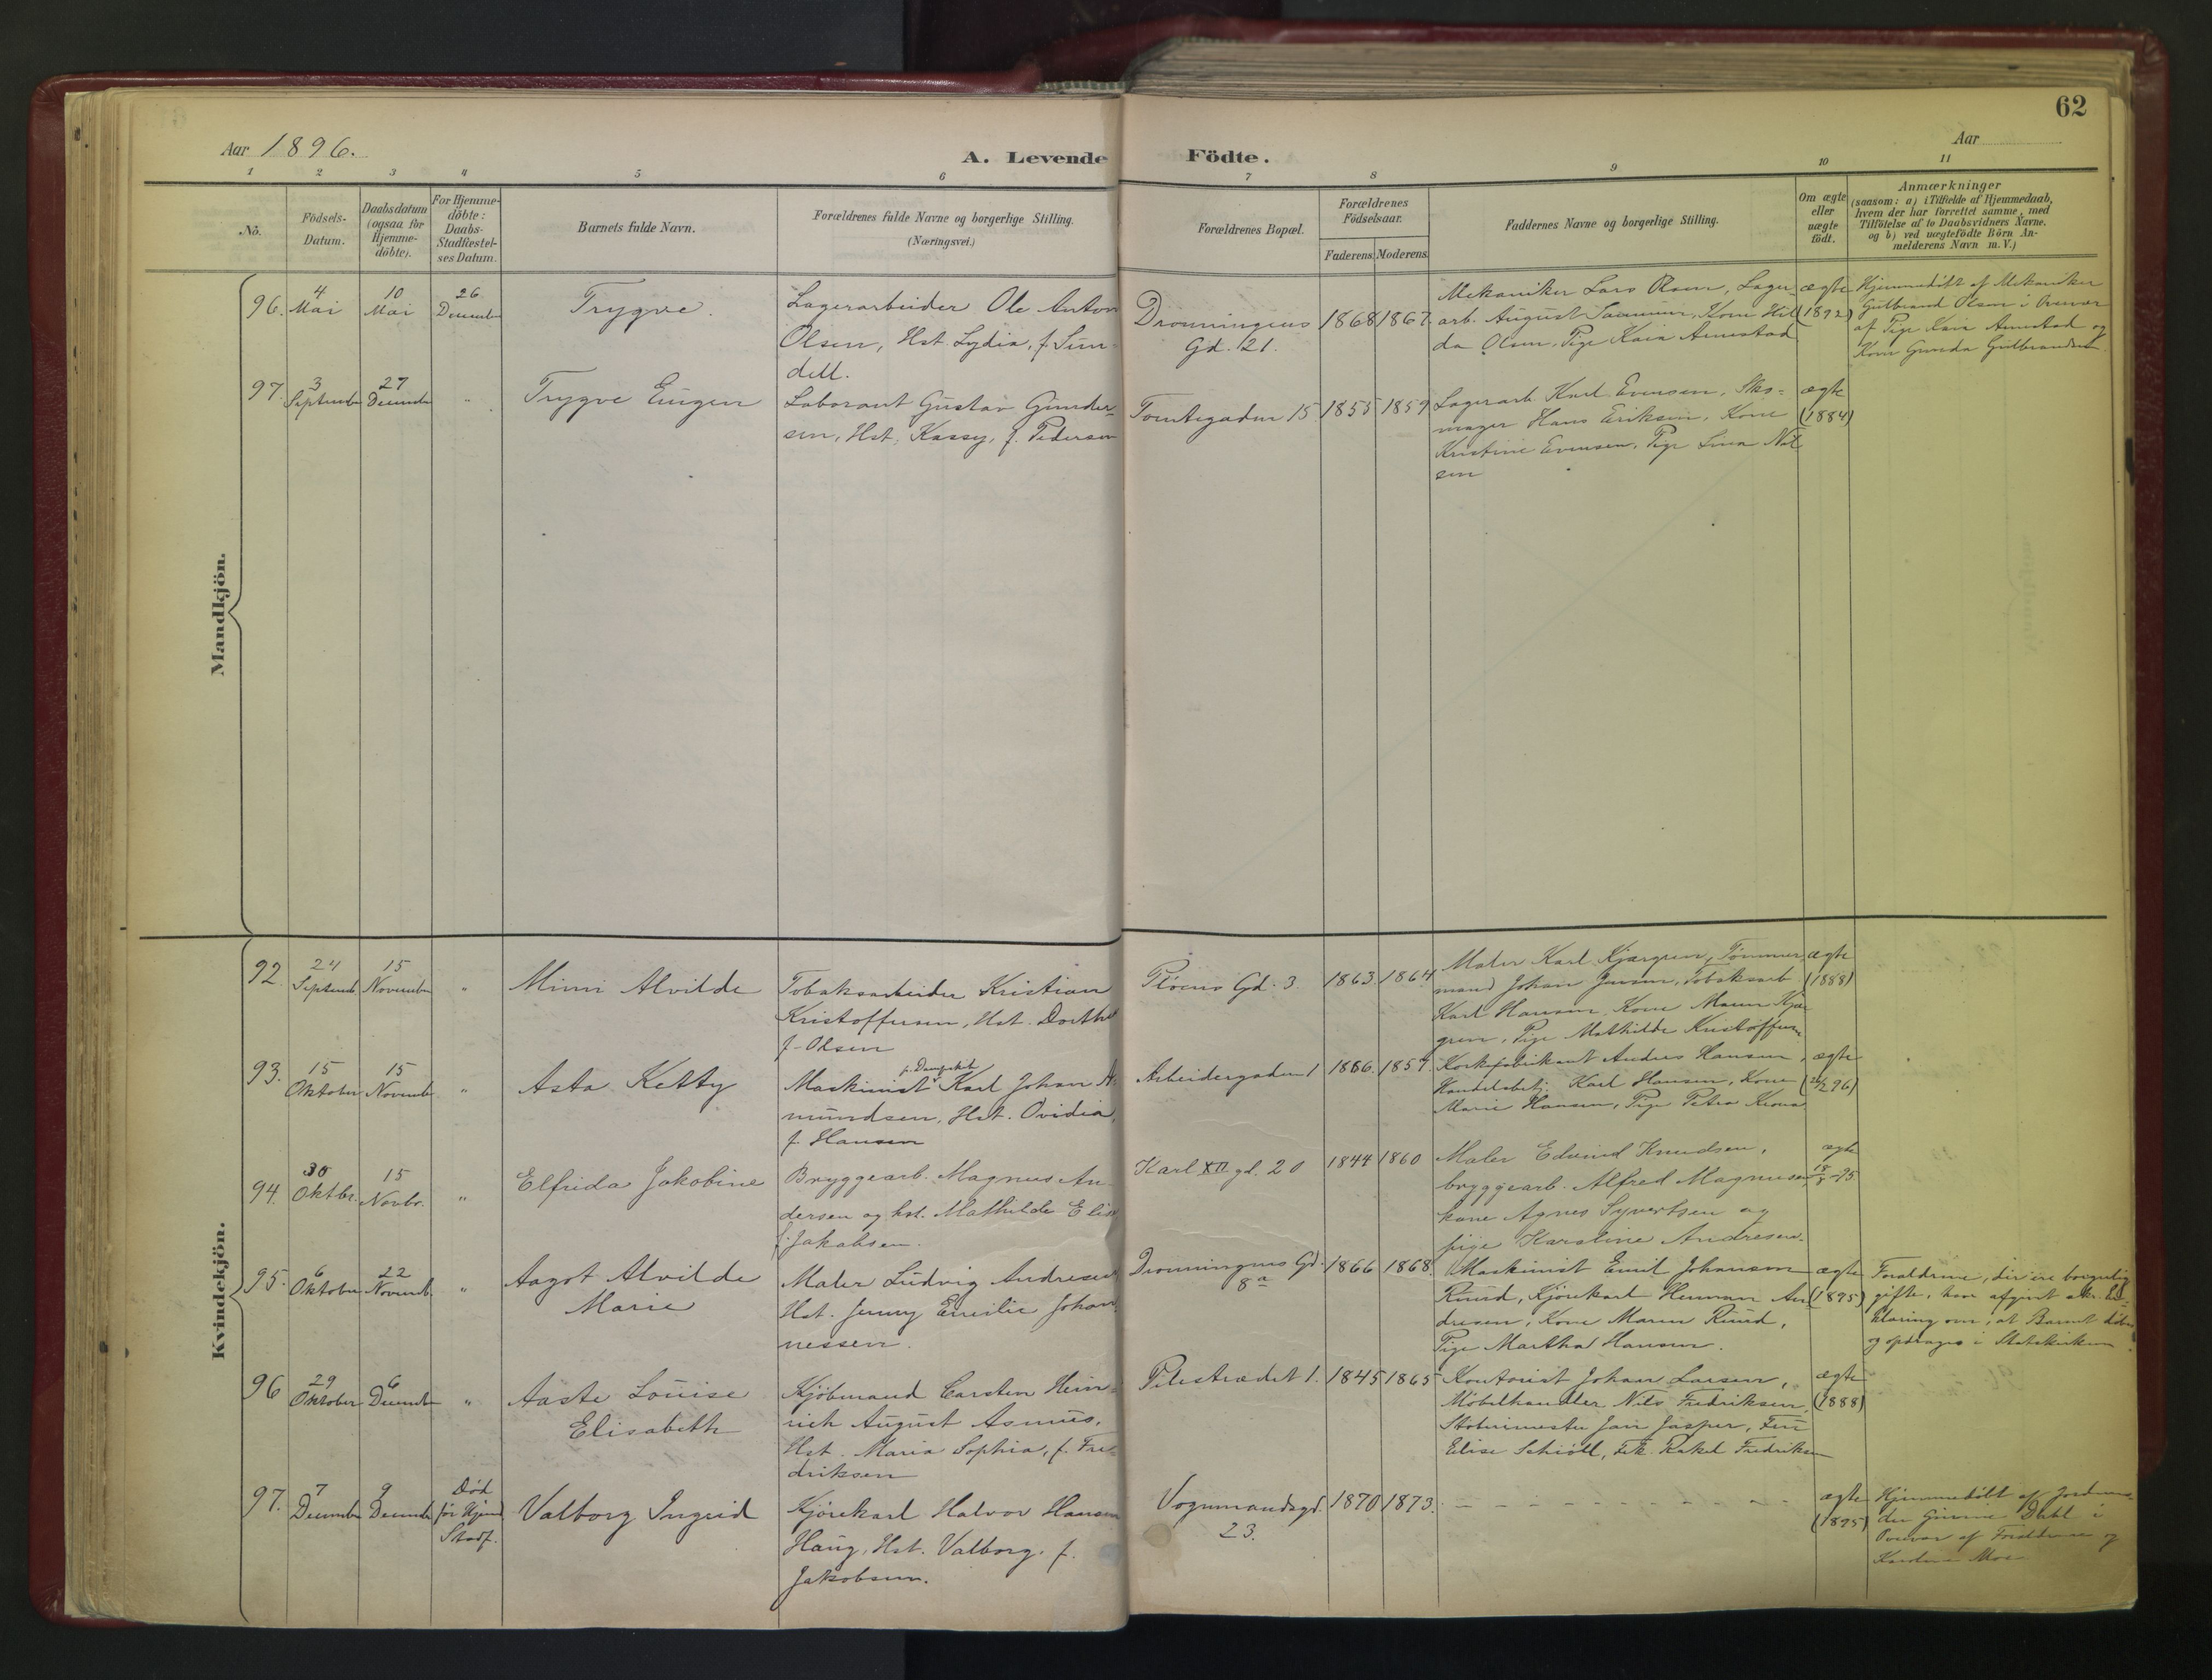 62
Aar 1896.
A. Levende Födte.
Aar
1 2 3 4 5 6 7 8 9 10 11
No.
Födsels-
Datum.
Daabsdatum
(ogsaa for
Hjemme-
döbte).
For Hjemme-
döbte:
Daabs-
Stadfæstel-
ses Datum.
Barnets fulde Navn.
Forældrenes fulde Navne og borgerlige Stilling.
(Næringsvei.)
Forældrenes Bopæl.
Forældrenes
Födselsaar.
Faderens. Moderens.
Faddernes Navne og borgerlige Stilling.
Om ægte
eller
uægte
födt.
Anmærkninger
(saasom: a) i Tilfælde af Hjemmedaab,
hvem der har forrettet samme, med
Tilföielse af to Daabsvidners Navne,
og b) ved uægtefödte Börn An-
melderens Navn m. V.)
Mandkjön.
96.
4
Mai
10
Mai
26
Decembr
Trygve.
Lagerarbeider Ole Anton
Olsen, Hst. Lydia, f. Sun-
dell.
Dronningens
Gd. 21.
1868 1867.
Mekaniker Lars Olsen, Lager
arb. August Kone Hil
da Olsen, Pige Kaia Arnestad
ægte
(1892)
Hjemmedöbt af Mekaniker
Gulbrand Olsen i Overvær
af Pige Kaia Arnestad og
Kone Gunda Gulbrandsen.
97.
3
Septembr
27
Decembr
"
Trygve Eugen
Laborant Gustav Gunder-
sen, Hst. Kassy, f. Pedersen
Tomtegaden 15
1855 1859
Lagerarb. Karl Evensen, Sko-
mager Hans Eriksen, Kone
Kristine Evensen, Pige Lina Nil
sen
ægte
(1884)
Kvindekjön.
92.
24
Septemb
15
November
"
Mimi Alvilde
Tobaksarbeider Kristian
Kristoffersen, Hst. Dorthea
f. Olsen
Pløens Gd. 3.
1863. 1864
Maler Karl Kjærgren, Tømmer
mand Johan Jensen, Tobaksarb.
Karl Hansen, Kone Maren Kjær
gren, Pige Mathilde Kristoffersen
ægte
(1888)
93.
15
Oktober
15
Novembr
"
Asta Ketty
p. Dampskib
Maskinist Karl Johan A-
mundsen, Hst. Ovidia,
f. Hansen
Arbeidergaden 1
1866. 1857.
Korkfabrikant Anders Hansen,
Handelsbetj. Karl Hansen, Kone
Marie Hansen, Pige Petra
ægte
94.
30
Oktbr.
15
Novbr.
"
Elfrida Jakobine
Bryggearb. Magnus An-
dersen og hst. Mathilde Elise
f. Jakobsen.
Karl XII gd. 20
1844 1860
Maler Edvind Knudsen,
bryggearb. Alfred Magnusen,
kone Agnes Syvertsen og
pige Karoline Andresen.
ægte
95.
6
Oktober
22
Novemb.
"
Aagot Alvilde
Marie
Maler Ludvig Andresen
Hst. Jenny Emilie Johan
nessen.
Dronningens Gd.
8a
1866 1868.
Maskinist Emil Johanson
Ruud, Kjørekarl Herman An
dresen, Kone Maren Ruud,
Pige Martha Hansen.
ægte
(1895)
Forældrene, der ere borgerlig
gifte, have afgivet skr. Er-
klæring om, at Barnet døbes
og opdrages i Statskirken
96
29
Oktober
6
Decembr
"
Aaste Louise
Elisabeth
Kjøbmand Carsten Hein-
rich August Asmus,
Hst. Maria Sophia, f. Fre-
driksen
Pilestrædet 1.
1845 1865
Kontorist Johan Larsen,
Møbelhandler Nils Fredriksen,
Jan Jasper, Fru
Elise Schiöll, Frk. Rakel Fredriksen
ægte
(1888)
97.
7
Decembr
9
Decembr
Død
før Hjem
Stadf.
Valborg Ingrid
Kjørekarl Halvor Hansen
Haug, Hst. Valborg. f.
Jakobsen.
Vognmandsgd.
23.
1870 1873.
- - - - - - - - - - -
ægte
(1895)
Hjemmedöbt af Jordmo-
der Dahl i
Overvær af Forældrene og
Moe